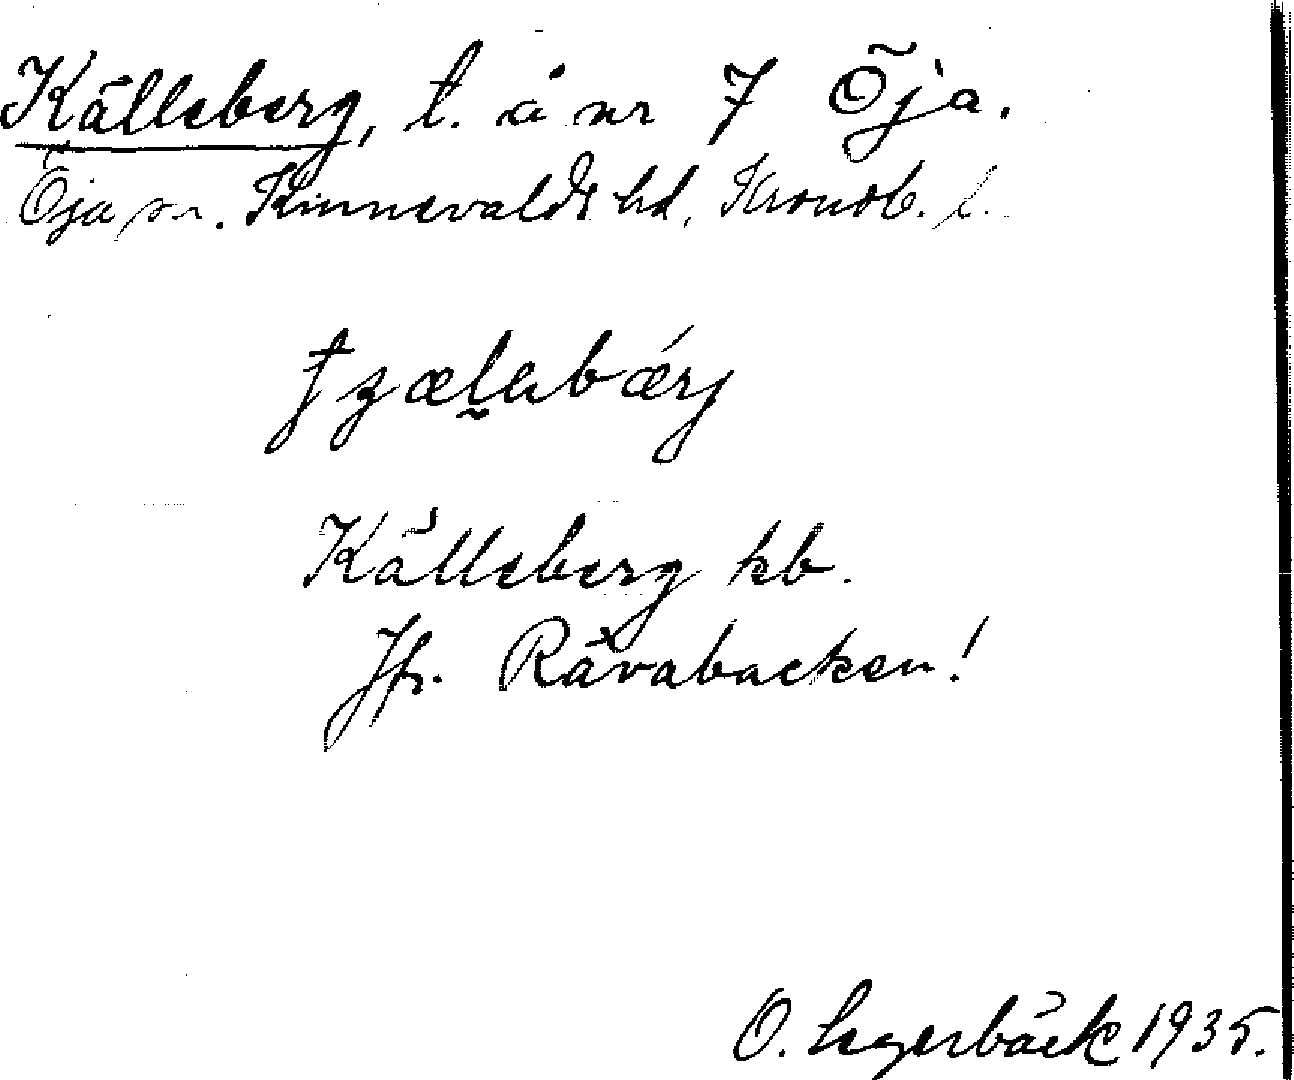 Källeberg, t. å nr 7 Öja.
Öja sn. Kinnevalds hd, Kronob. l.
Källeberg kb.
Jfr. Rävabacken!
O. Lagerbäck 1935.